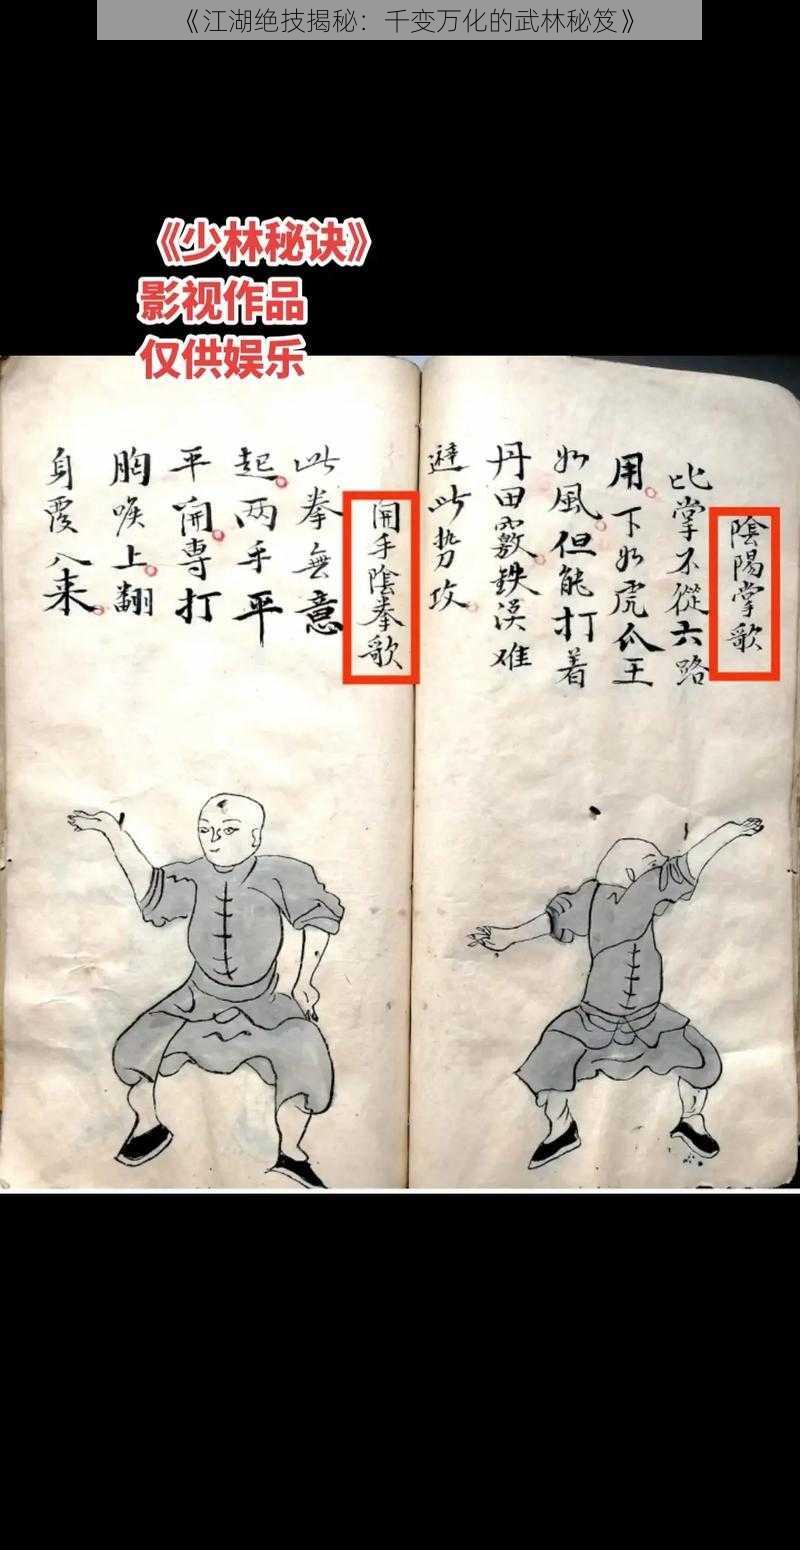 《江湖绝技揭秘：千变万化的武林秘笈》
《少林秘诀》
影视作品
仅供娱乐
陰陽掌歌
比掌不從六路
用下如虎爪王
如風但能打着
丹田竅鉄漢难
避此势攻
開手陰拳歌
此拳無意
起两手平
平開專打
胸喉上翻
身覆入来